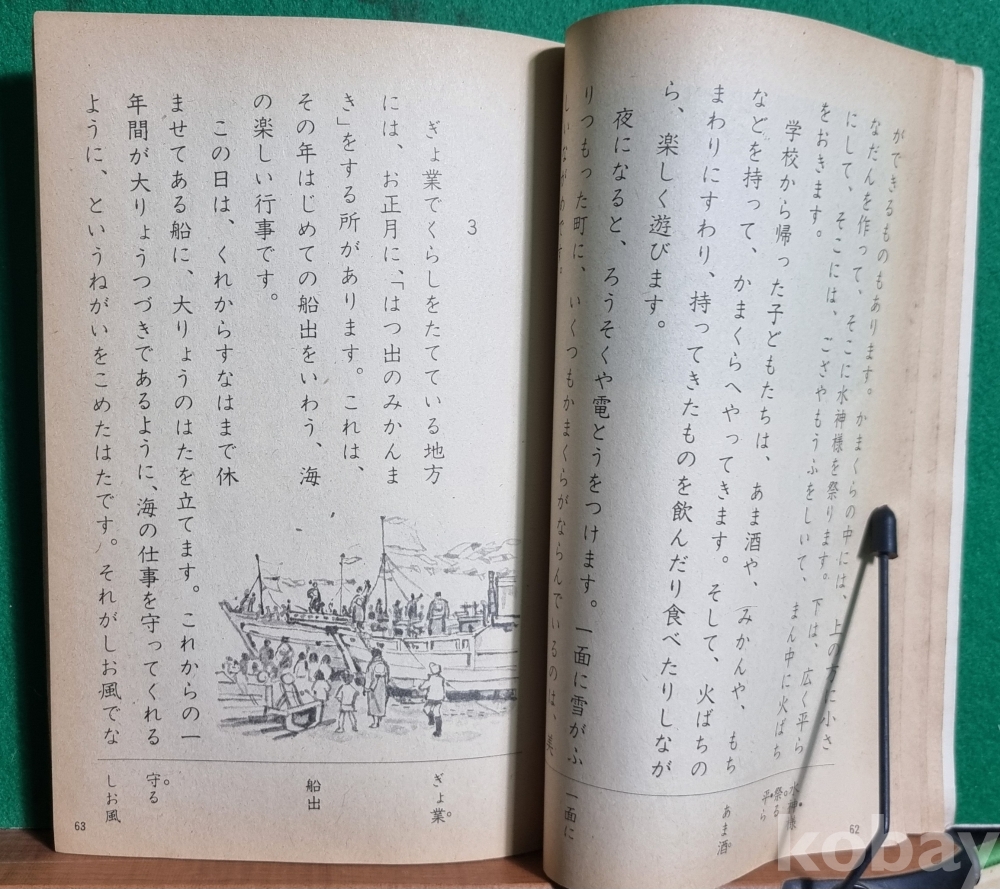 ができるものもあります。かまくらの中には、上の方に小さ
なだんを作って、そこに水神様を祭ります。下は、広く平ら
にして、そこには、ござやもうふをしいて、まん中に火ばち
をおきます。
学校から帰った子どもたちは、あま酒や、みかんや、もち
などを持って、かまくらへやってきます。そして、火ばちの
まわりにすわり、持ってきたものを飲んだり食べたりしなが
ら、楽しく遊びます。
夜になると、ろうそくや電とうをつけます。一面に雪がふ
りつもった町に、いくつもかまくらがならんでいるのは、美
しいながめです。
水神様
祭る
平ら
あま酒
一面に
62
3
ぎょ業でくらしをたてている地方
には、お正月に、「はつ出のみかんま
き」をする所があります。これは、
その年はじめての船出をいわう、海
の楽しい行事です。
この日は、くれからすなはまで休
ませてある船に、大りょうのはたを立てます。これからの一
年間が大りょうつづきであるように、海の仕事を守ってくれる
ように、というねがいをこめたはたです。それがしお風でな
ぎょ業
船出
守る
しお風
63
kobay